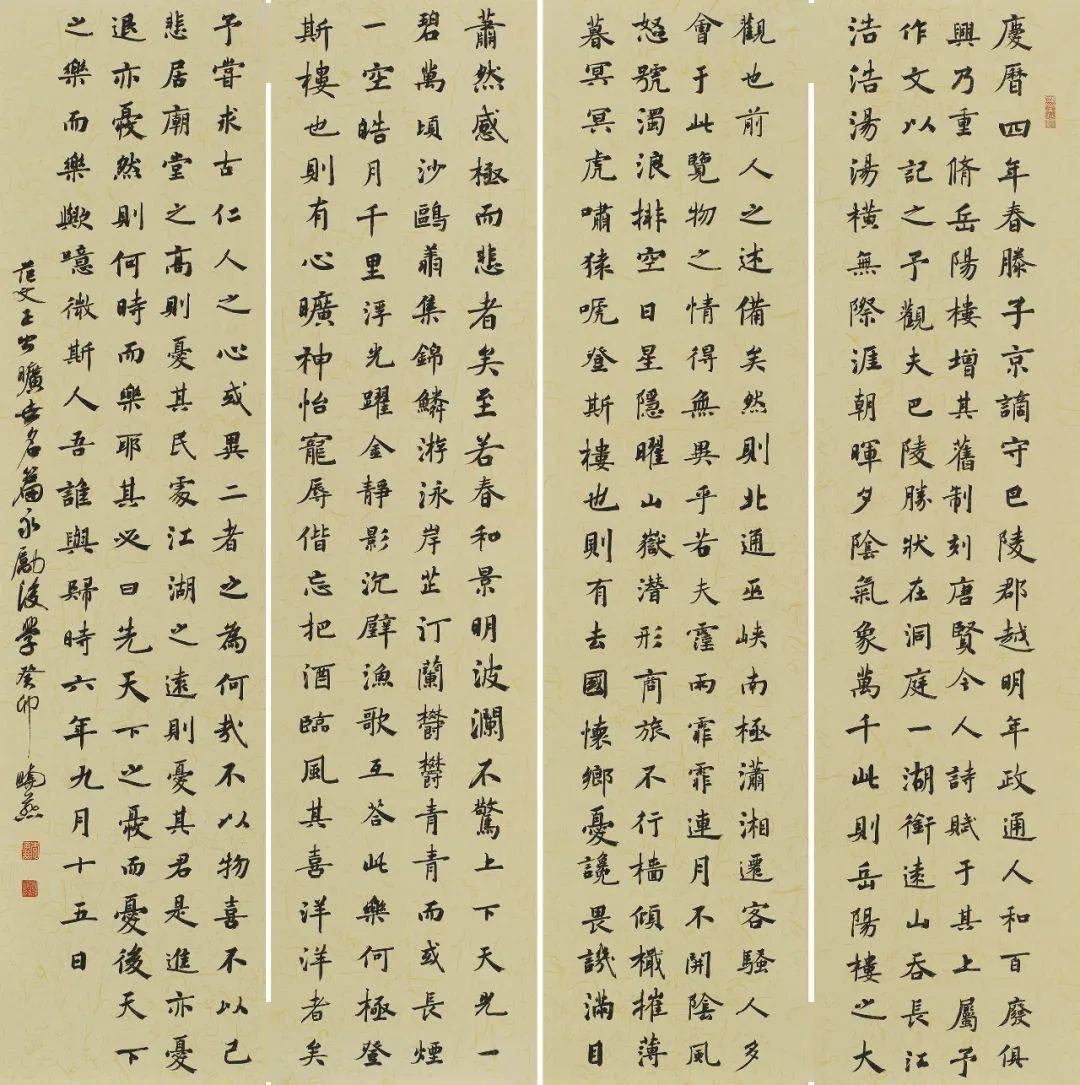 慶曆四年春滕子京謫守巴陵郡越明年政通人和百廢俱
興乃重脩岳陽樓增其舊制刻唐賢今人詩賦于其上屬予
作文以記之予觀夫巴陵勝狀在洞庭一湖銜遠山吞長江
浩浩湯湯橫無際涯朝暉夕陰氣象萬千此則岳陽樓之大
觀也前人之述備矣然則北通巫峽南極瀟湘遷客騷人多
會于此覽物之情得無異乎若夫霪雨霏霏連月不開陰風
怒號濁浪排空日星隱曜山嶽潛形商旅不行檣傾檝摧薄
暮冥冥虎嘯猿嗁登斯樓也則有去國懷鄉憂讒畏譏滿目
蕭然感極而悲者矣至若春和景明波瀾不驚上下天光一
碧萬頃沙鷗翔集錦鱗游泳岸芷汀蘭鬱鬱青青而或長煙
一空皓月千里浮光躍金靜影沉璧漁歌互答此樂何極登
斯樓也則有心曠神怡寵辱偕忘把酒臨風其喜洋洋者矣
予嘗求古仁人之心或異二者之為何哉不以物喜不以己
悲居廟堂之高則憂其民處江湖之遠則憂其君是進亦憂
退亦憂然則何時而樂耶其必曰先天下之憂而憂後天下
之樂而樂歟噫微斯人吾誰與歸時六年九月十五日
范文正公曠世名篇永勵後學癸卯曉燕